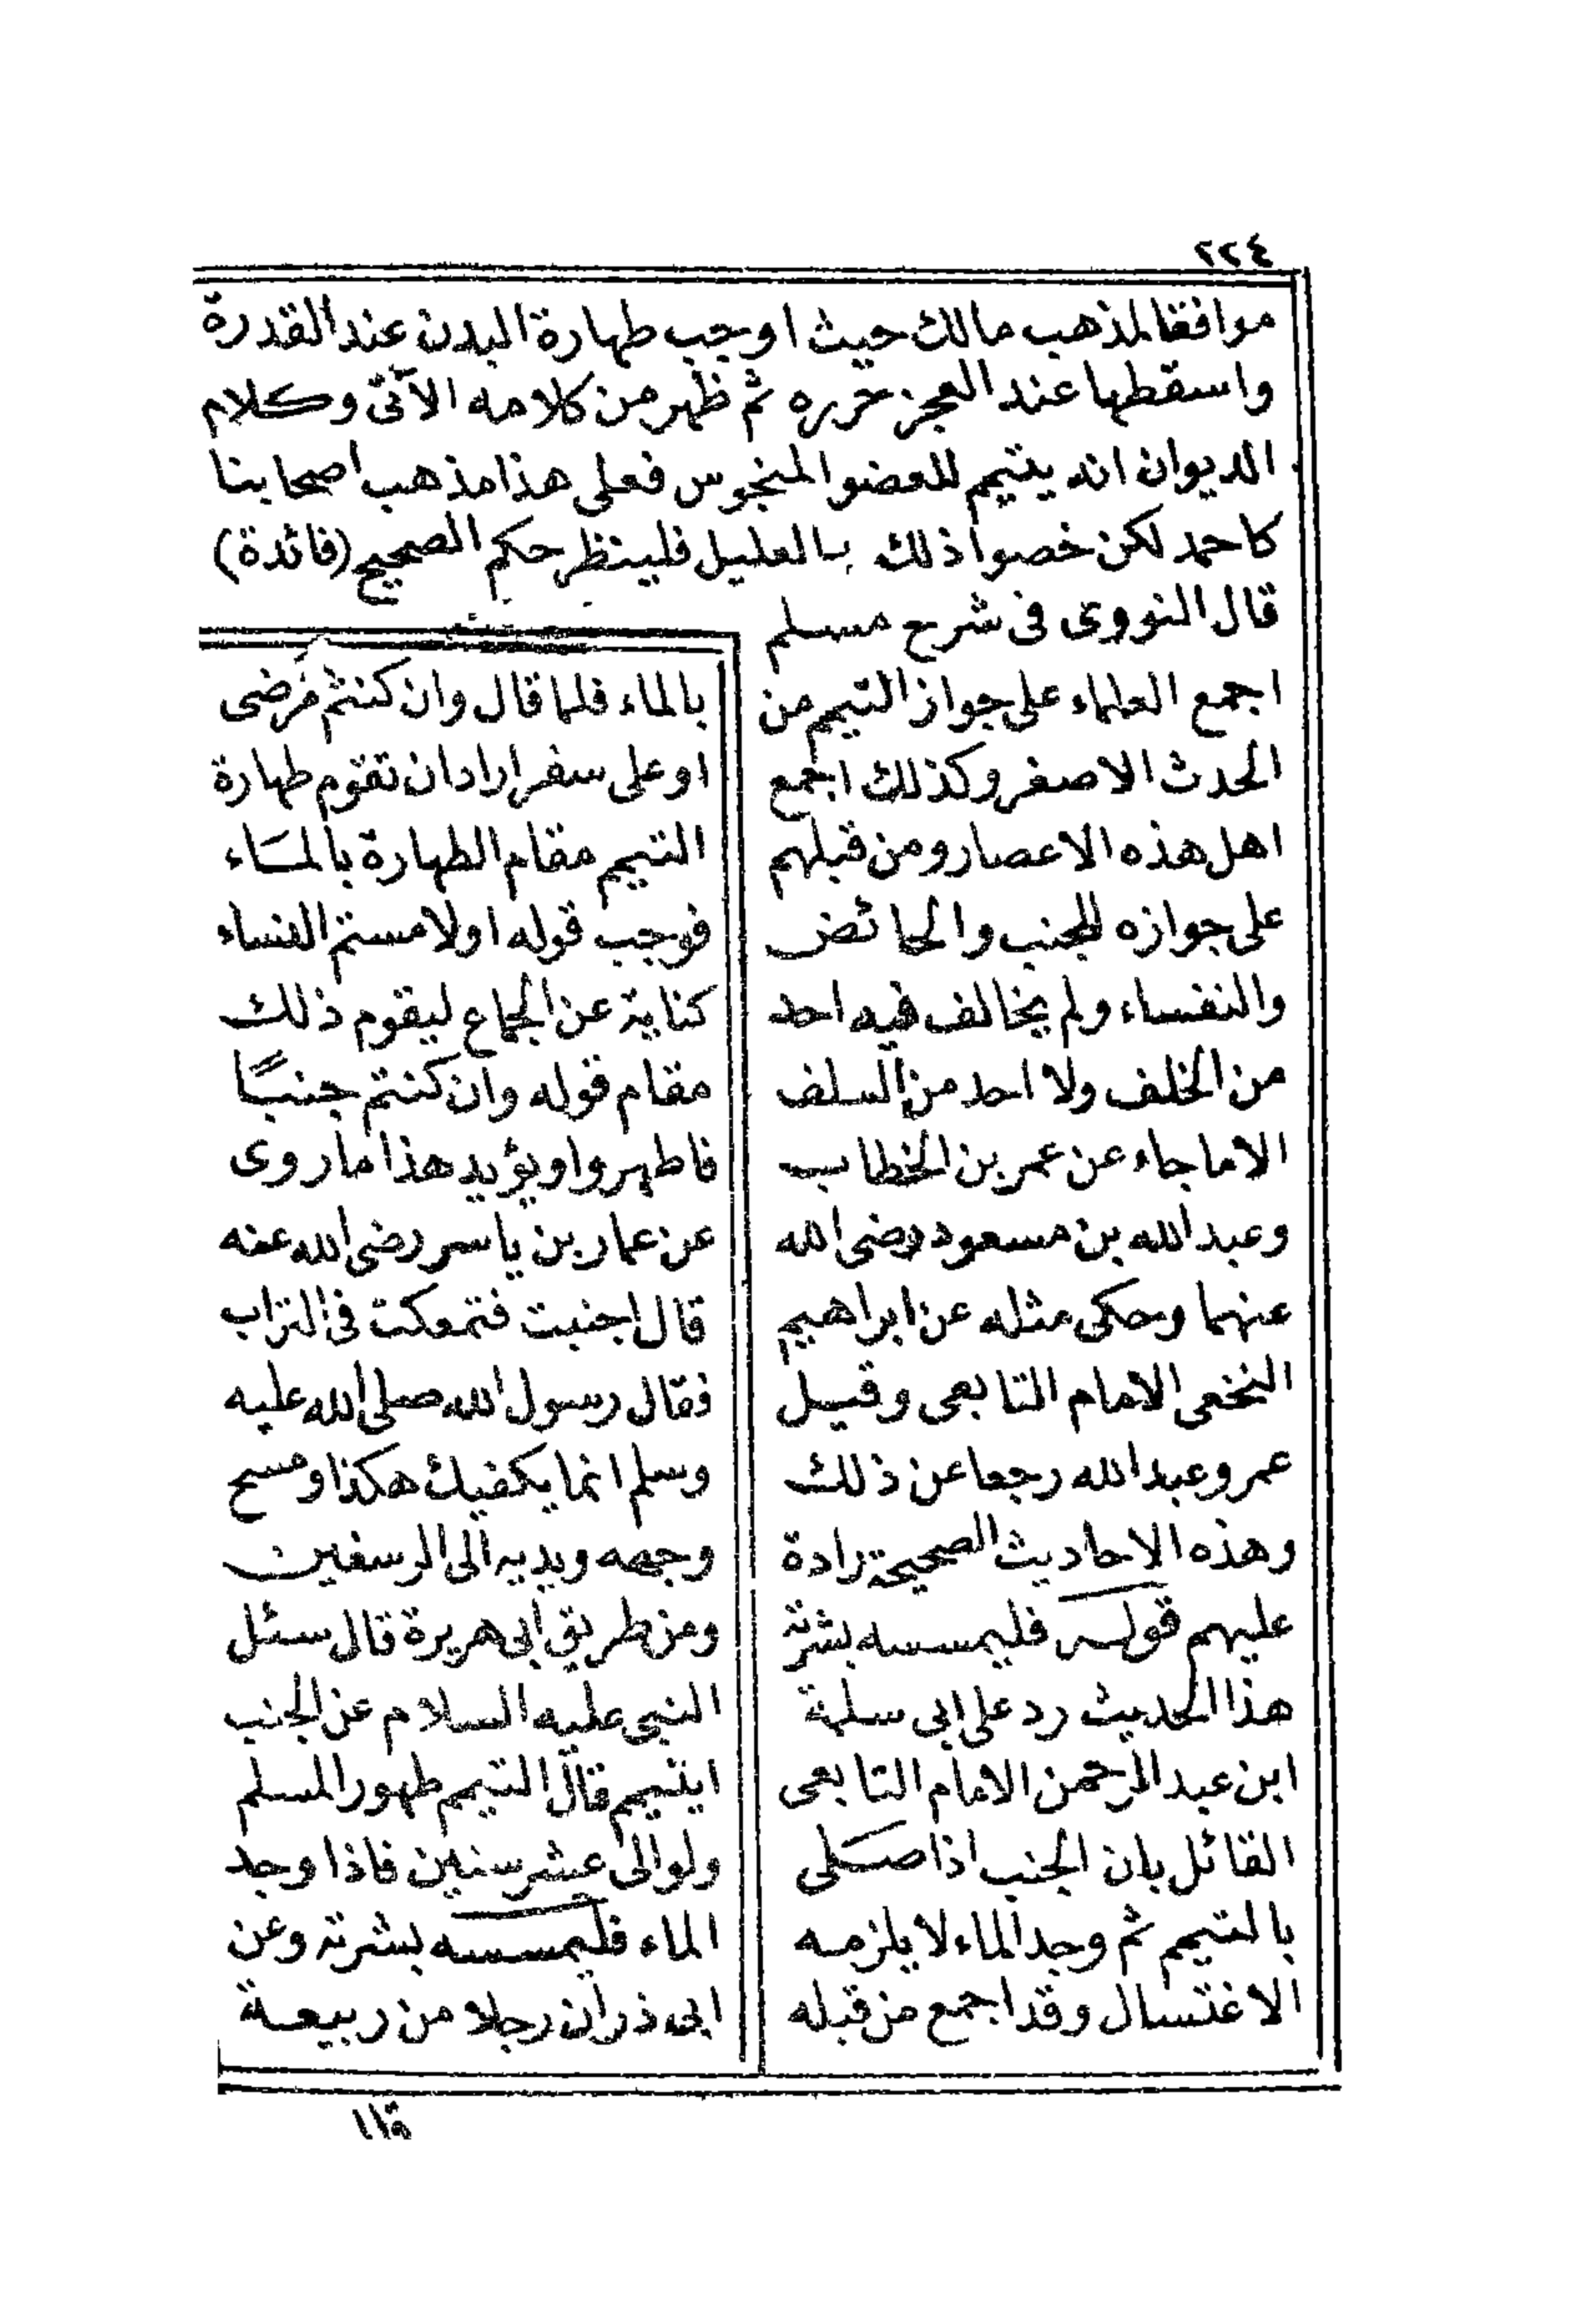 ٢٢٤
موافقا لمذهب مالك حيث اوجب طهارة البدن عند القدرة
واسقطها عند العجز حرره ثم ظهر من كلامه الآتى وكلام
الديوان انه يتيمم للعضو المنجوس فعلى هذا مذهب اصحابنا
كاحمد لكن خصوا ذلك بالعليل فلينظر حكم الصحيح (فائدة)
قال النووى فى شرح مسلم
اجمع العلماء على جواز التيمم من
الحدث الاصغر وكذلك اجمع
اهل هذه الاعصار ومن قبلهم
على جوازه للجنب والحائض
والنفساء ولم يخالف فيه احد
من الخلف ولا احد من السلف
الا ما جاء عن عمر بن الخطاب
وعبد الله بن مسعود رضى الله
عنهما وحكى مثله عن ابراهيم
النخعى الامام التابعى وقيل
عمر وعبد الله رجعا عن ذلك
وهذه الاحاديث الصحيحة رادة
عليهم قوله فليمسسه بشرته
هذا الحديث رد على ابى سلمة
ابن عبد الرحمن الامام التابعى
القائل بان الجنب اذا صلى
بالتيمم ثم وجد الماء لا يلزمه
الاغتسال وقد اجمع من قبله
بالماء فلما قال وان كنتم مرضى
او على سفر اراد ان تقوم طهارة
التيمم مقام الطهارة بالماء
فوجب قوله اولامستم النساء
كناية عن الجماع ليقوم ذلك
مقام قوله وان كنتم جنبًا
فاطهروا ويؤيد هذا ما روى
عن عمار بن ياسر رضى الله عنه
قال اجنبت فتمعكت فى التراب
فقال رسول الله صلى الله عليه
وسلم انما يكفيك هكذا ومسح
وجهه ويديه الى الرسغين
ومن طريق ابى هريرة قال سئل
النبى عليه السلام عن الجنب
ايتيمم قال التيمم طهور المسلم
ولو الى عشر سنين فاذا وجد
الماء فليمسسه بشرته وعن
ابى ذر ان رجلا من ربيعة